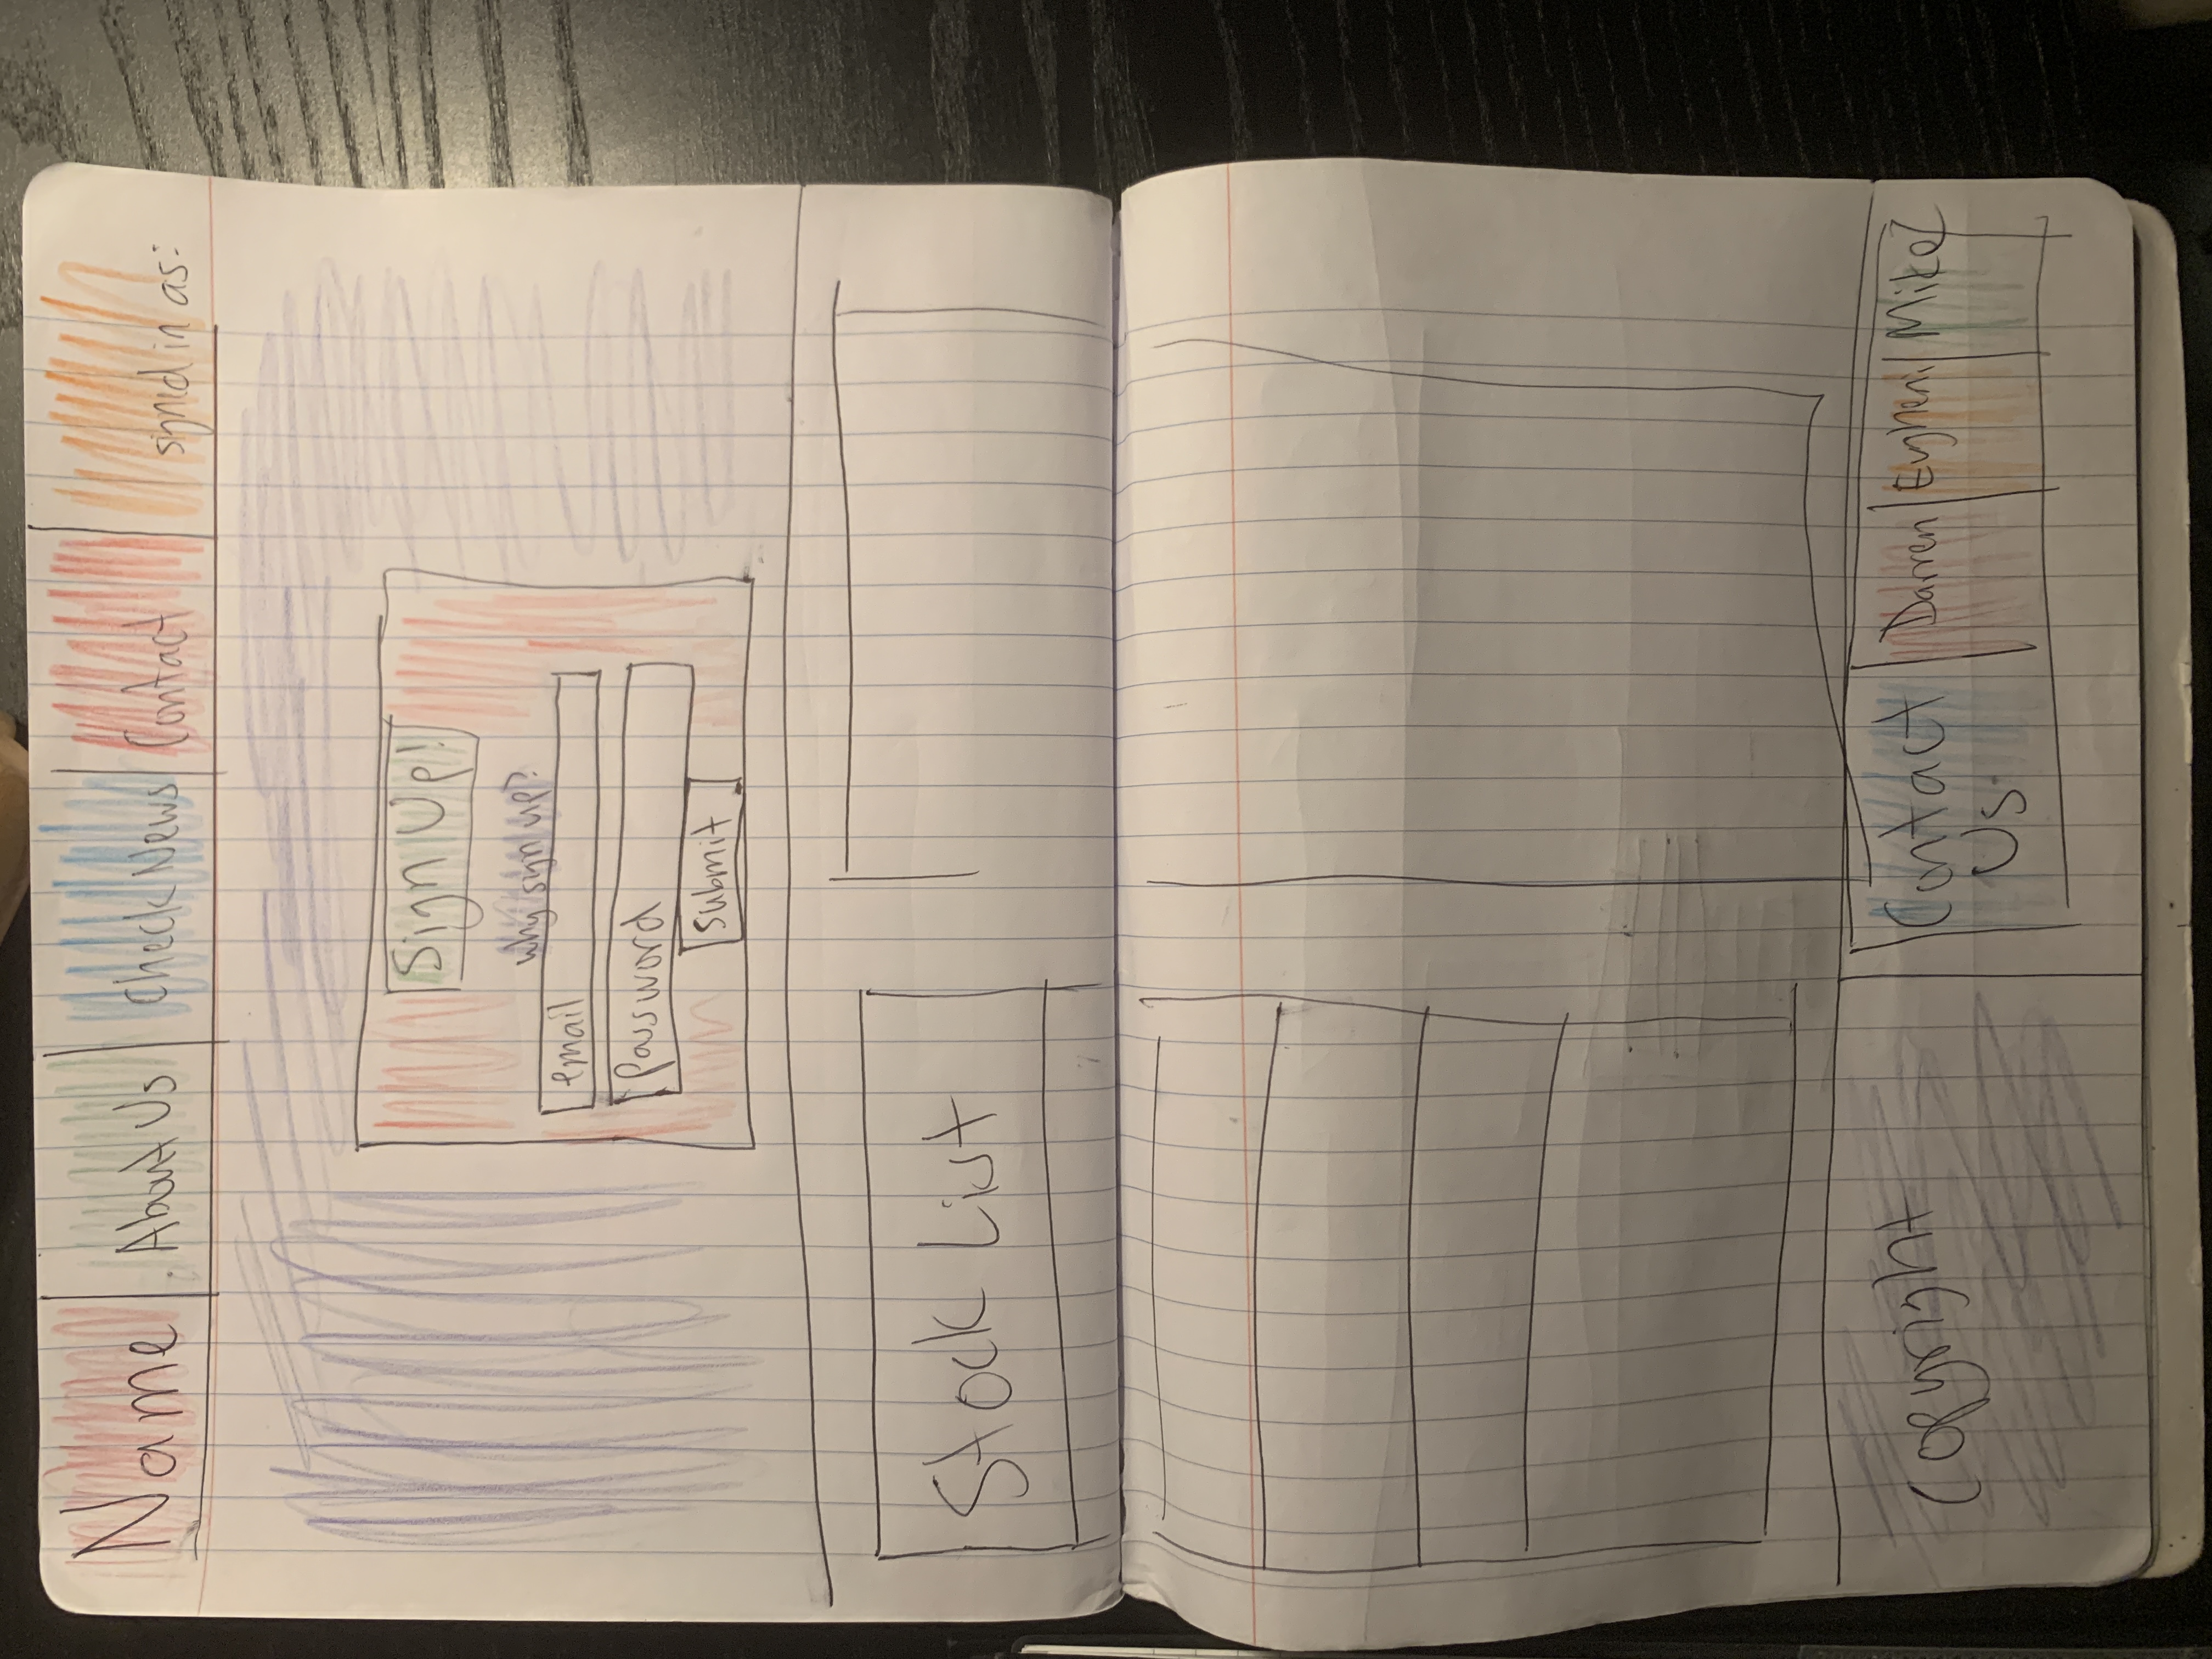 Name
About Us
Check News
Contact
signed in as:
Sign Up!
why sign up?
email
password
submit
Stock List
Copyright
Contact
Us
Darren
Evgheni
Mike